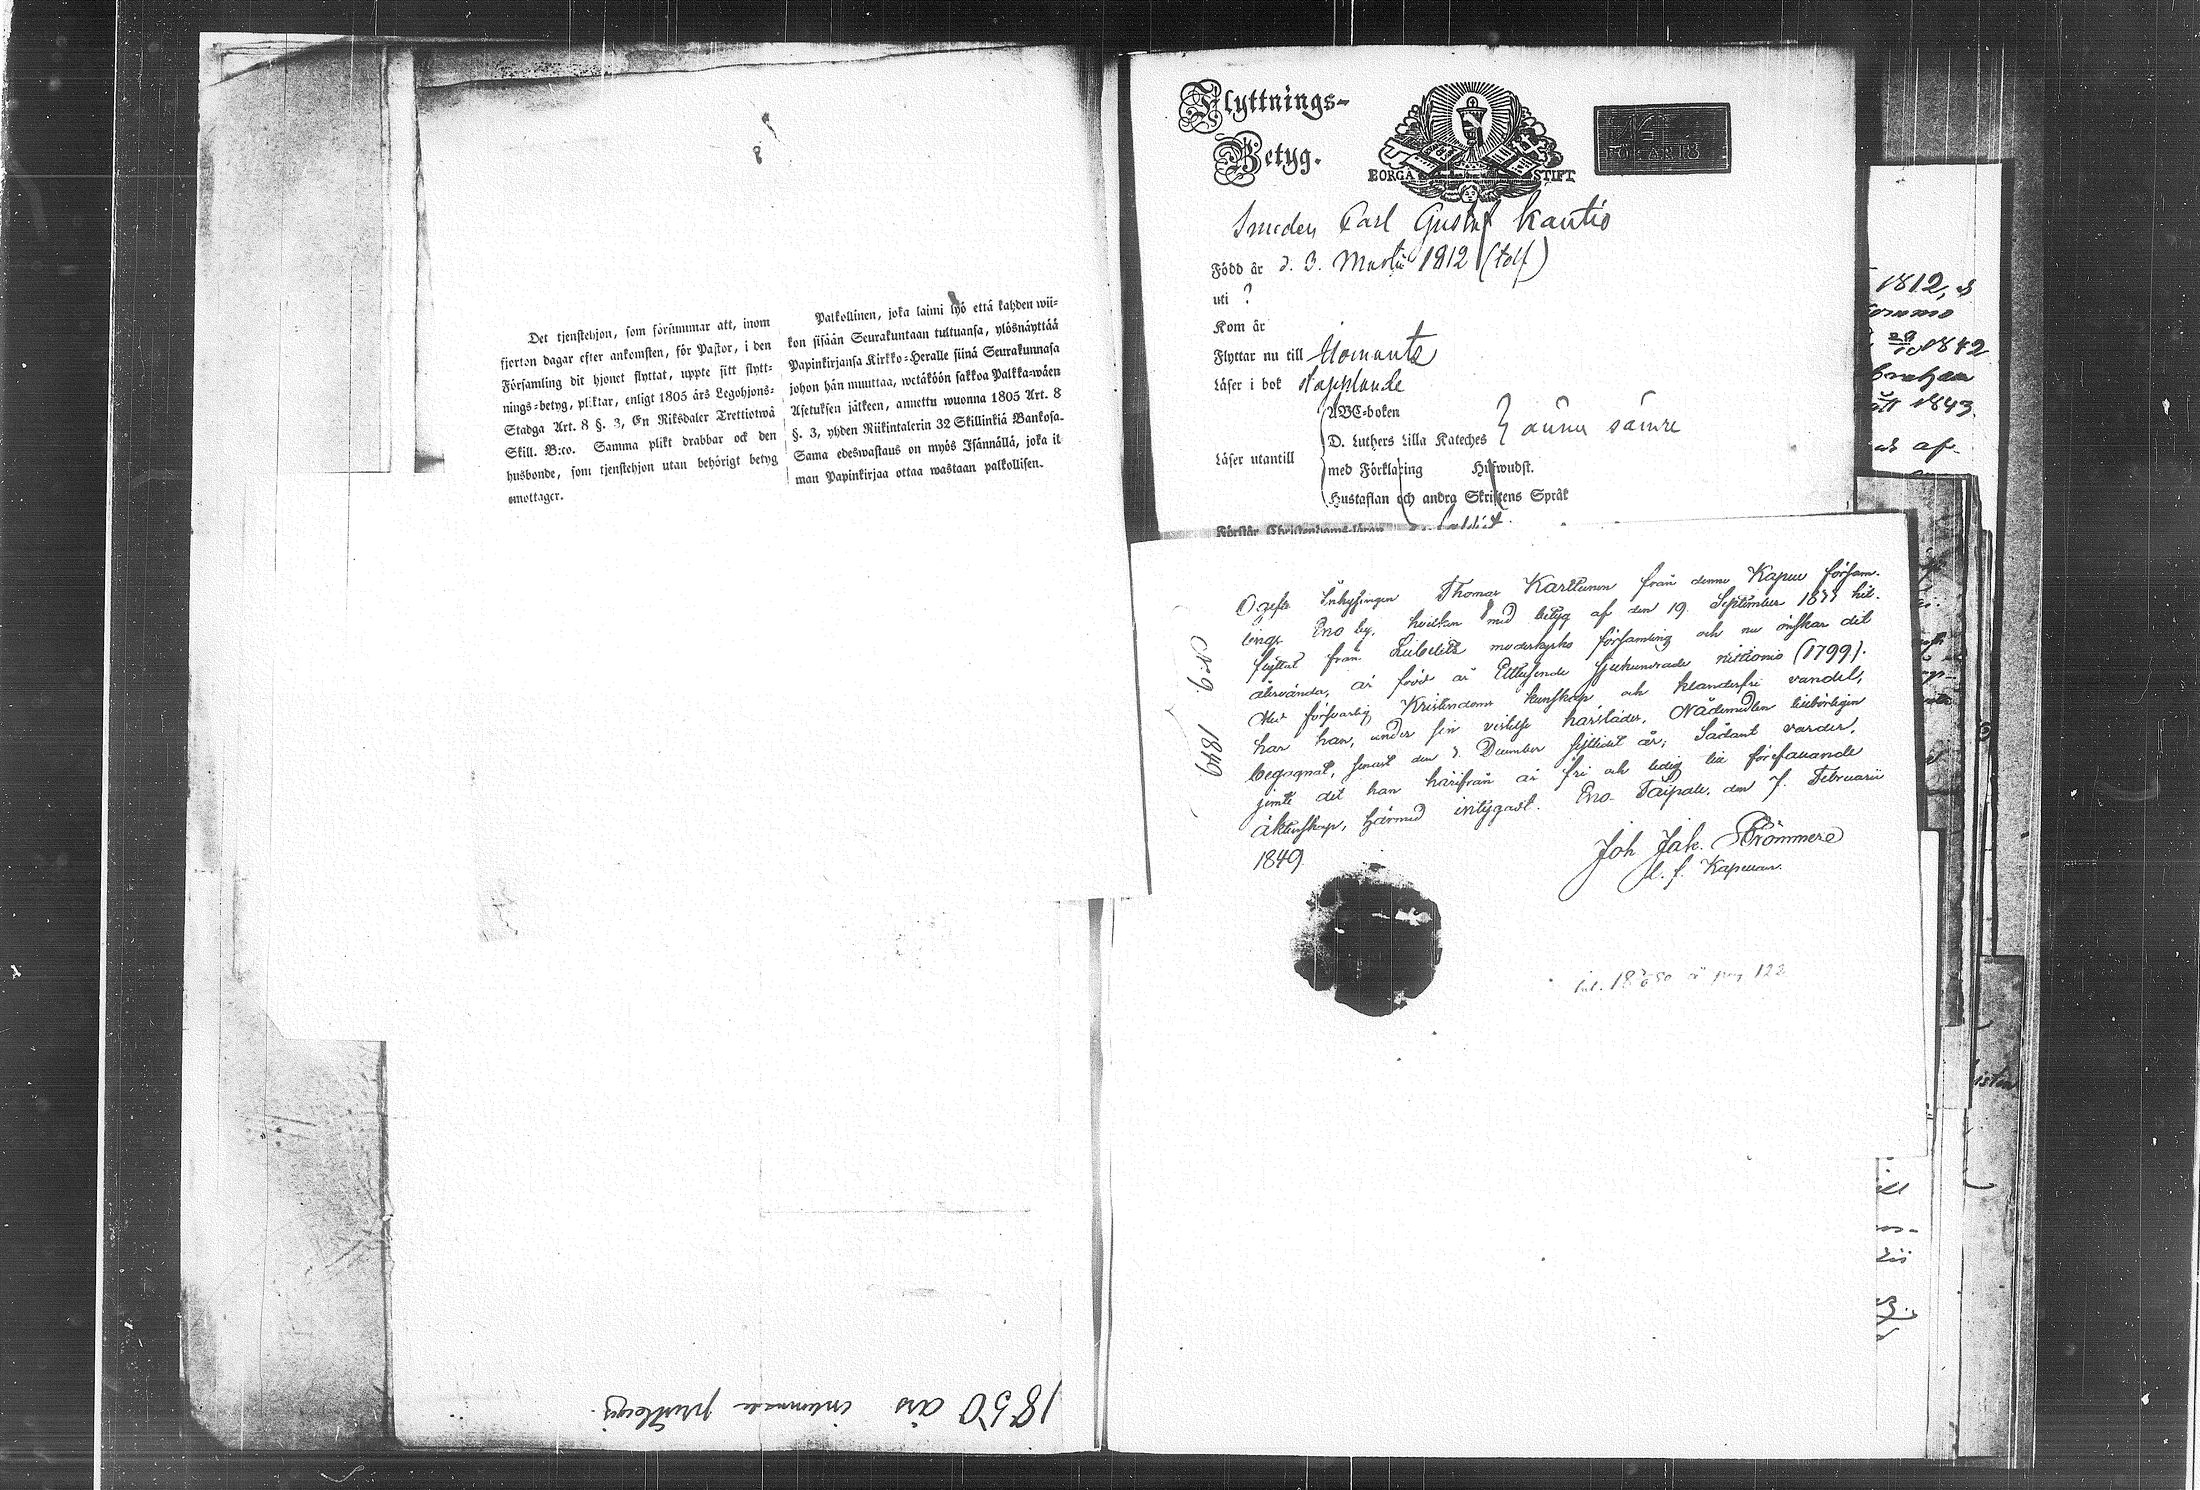 Det tjenstehjon, som försummar att, inom
fjorton dagar efter ankomsten, för Pastor, i den
Församling dit hjonet flyttat, uppte sitt flytt-
nings-betyg, pliktar, enligt 1805 års Legohjons-
Stadga Art. 8 §. 3, En Riksdaler Trettiotwå
Skill. B:co. Samma plikt drabbar ock den
husbonde, som tjenstehjon utan behörigt betyg
emottager.
Palkollinen, joka laimi lyö että kahden wii-
kon sisään Seurakuntaan tultuansa, ylösnäyttää
Papinkirjansa Kirkko-Heralle siinä Seurakunnasa
johon hän muuttaa, wetäköön sakkoa Palkka-wäen
Asetuksen jälkeen, annettu wuonna 1805 Art. 8
§. 3, yhden Riikintalerin 32 Skillinkiä Bankosa.
Sama edeswastaus on myös Isännällä, joka il
man Papinkirjaa ottaa wastaan palkollisen.
1850 års inkomna prestbetyg.
Flyttnings-
Betyg.
BORGA STIFT
Smeden Carl Gustaf Kautio
Född år d. 3. Martii 1812 (tolf)
uti ?
Kom år
Flyttar nu till Ilomants
Läser i bok
ABC-boken
D. Luthers Lilla Kateches ännu sämre
Läser utantill
med Förklaring Hufwudst.
Hustaflan och andra Skriftens Språk
Förstår Christendoms-läran
N:o 9. 1849
Ogifte Inhysingen Thomas Karttunen från denne Kapell försam-
lings Eno by, hvilken med betyg af den 19. September 1837 hit-
flyttat från Libelits moderkyrko församling och nu önskar dit
återvända, är född år Ettusende sjuhundrade nittionio (1799).
Med försvarlig Kristendoms kunskap och klanderfri vandel,
har han, under sin vistelse härstädes, Nådemedlen tillbörligen
begagnat, senast den 3. December sistledit år; Sådant varder,
jemte det han härifrån är fri och ledig till förefallande
äktenskap, härmed intygadt. Eno Taipale, den 7. Februarii
1849
Joh Jak. Strömmer
v. f. Kapellan.
pag 122
1812, d
1842
1843.
af